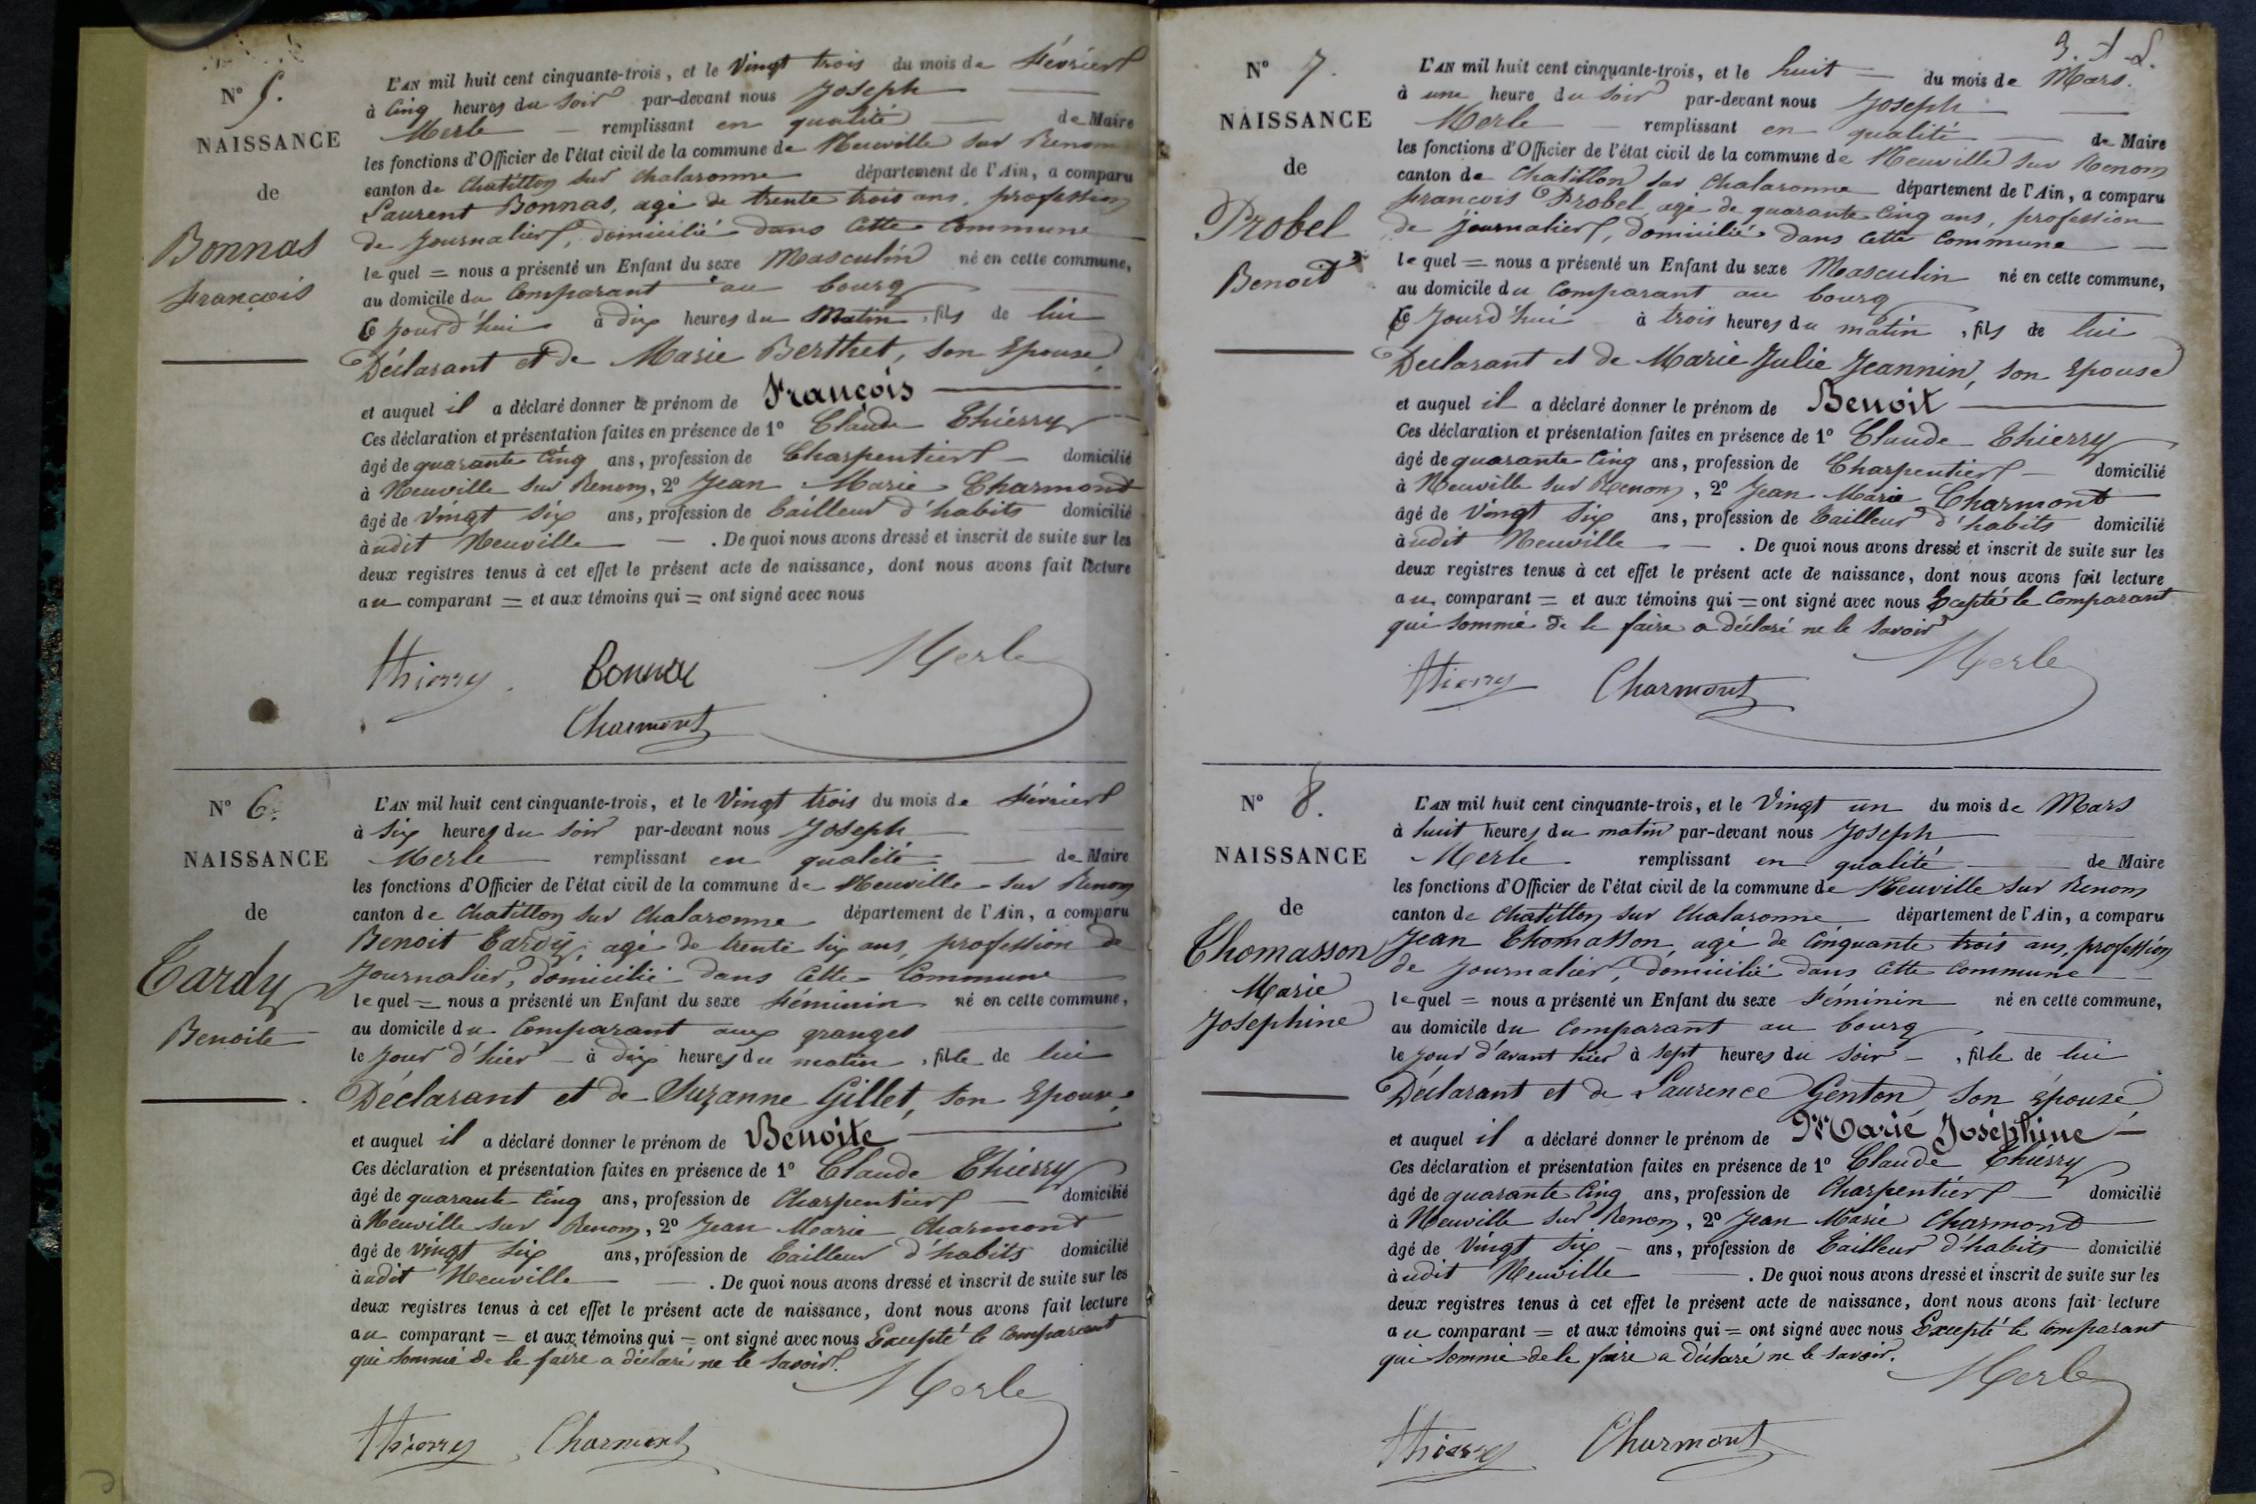 N° 5.
NAISSANCE
de
Bonnas
François
L'AN mil huit cent cinquante-trois, et le Vingt trois du mois de Février
à Cinq heures du soir par-devant nous Joseph
Merle remplissant en qualité de Maire
les fonctions d'Officier de l'état civil de la commune de Neuville sur Renom
canton de Chatillon sur Chalaronne département de l'Ain, a comparu
Laurent Bonnas, agé de trente trois ans, profession
de Journalier, domicilié dans cette Commune
lequel = nous a présenté un Enfant du sexe Masculin né en cette commune,
au domicile du Comparant au bourg
Ce jourd'hui à dix heures du Matin, fils de lui
Déclarant et de Marie Berthet, son Epouse,
et auquel il a déclaré donner le prénom de François
Ces déclaration et présentation faites en présence de 1° Claude Thierry
âgé de quarante Cinq ans, profession de Charpentier domicilié
à Neuville sur Renom, 2° Jean Marie Charmont
âgé de Vingt six ans, profession de Tailleur d'habits domicilié
audit Neuville. De quoi nous avons dressé et inscrit de suite sur les
deux registres tenus à cet effet le présent acte de naissance, dont nous avons fait lecture
au comparant = et aux témoins qui = ont signé avec nous
Thierry Bonnas Merle
Charmont
N° 6.
NAISSANCE
de
Tardy
Benoite
L'AN mil huit cent cinquante-trois, et le Vingt trois du mois de Février
à six heures du soir par-devant nous Joseph
Merle remplissant en qualité de Maire
les fonctions d'Officier de l'état civil de la commune de Neuville sur Renom
canton de Chatillon sur Chalaronne département de l'Ain, a comparu
Benoit Tardy, agé de trente six ans, profession de
Journalier, domicilié dans cette Commune
lequel = nous a présenté un Enfant du sexe Féminin né en cette commune,
au domicile du Comparant aux granges
le jour d'hier à dix heures du matin, fille de lui
Déclarant et de Suzanne Gillet, son Epouse,
et auquel il a déclaré donner le prénom de Benoite
Ces déclaration et présentation faites en présence de 1° Claude Thierry
âgé de quarante Cinq ans, profession de Charpentier domicilié
à Neuville sur Renom, 2° Jean Marie Charmont
âgé de Vingt six ans, profession de Tailleur d'habits domicilié
audit Neuville. De quoi nous avons dressé et inscrit de suite sur les
deux registres tenus à cet effet le présent acte de naissance, dont nous avons fait lecture
au comparant = et aux témoins qui = ont signé avec nous Excepté le Comparant
qui sommé de le faire a déclaré ne le savoir.
Merle
Thierry Charmont
N° 7.
NAISSANCE
de
Probel
Benoit
L'AN mil huit cent cinquante-trois, et le huit du mois de Mars.
à une heure du soir par-devant nous Joseph
Merle remplissant en qualité de Maire
les fonctions d'Officier de l'état civil de la commune de Neuville sur Renom
canton de Chatillon sur Chalaronne département de l'Ain, a comparu
François Probel, agé de quarante Cinq ans, profession
de journalier, domicilié dans cette Commune
lequel = nous a présenté un Enfant du sexe Masculin né en cette commune,
au domicile du Comparant au bourg
Ce jourd'hui à trois heures du matin, fils de lui
Déclarant et de Marie Julie Jeannin, son Epouse
et auquel il a déclaré donner le prénom de Benoit
Ces déclaration et présentation faites en présence de 1° Claude Thierry
âgé de quarante Cinq ans, profession de Charpentier domicilié
à Neuville sur Renom, 2° Jean Marie Charmont
âgé de Vingt six ans, profession de Tailleur d'habits domicilié
audit Neuville. De quoi nous avons dressé et inscrit de suite sur les
deux registres tenus à cet effet le présent acte de naissance, dont nous avons fait lecture
au comparant = et aux témoins qui = ont signé avec nous Excepté le Comparant
qui sommé de le faire a déclaré ne le savoir
Merle
Thierry Charmont
N° 8.
NAISSANCE
de
Thomasson
Marie
Josephine
L'AN mil huit cent cinquante-trois, et le Vingt un du mois de Mars
à huit heures du matin par-devant nous Joseph
Merle remplissant en qualité de Maire
les fonctions d'Officier de l'état civil de la commune de Neuville sur Renom
canton de Chatillon sur Chalaronne département de l'Ain, a comparu
Jean Thomasson, agé de Cinquante trois ans, profession
de journalier, domicilié dans cette commune
lequel = nous a présenté un Enfant du sexe Féminin né en cette commune,
au domicile du Comparant au bourg
le jour d'avant hier à sept heures du soir, fille de lui
Déclarant et de Laurence Genton, son Epouse
et auquel il a déclaré donner le prénom de Marie Joséphine
Ces déclaration et présentation faites en présence de 1° Claude Thierry
âgé de quarante Cinq ans, profession de Charpentier domicilié
à Neuville sur Renom, 2° Jean Marie Charmont
âgé de Vingt six ans, profession de Tailleur d'habits domicilié
audit Neuville. De quoi nous avons dressé et inscrit de suite sur les
deux registres tenus à cet effet le présent acte de naissance, dont nous avons fait lecture
au comparant = et aux témoins qui = ont signé avec nous Excepté le Comparant
qui sommé de le faire a déclaré ne le savoir.
Merle
Thierry Charmont